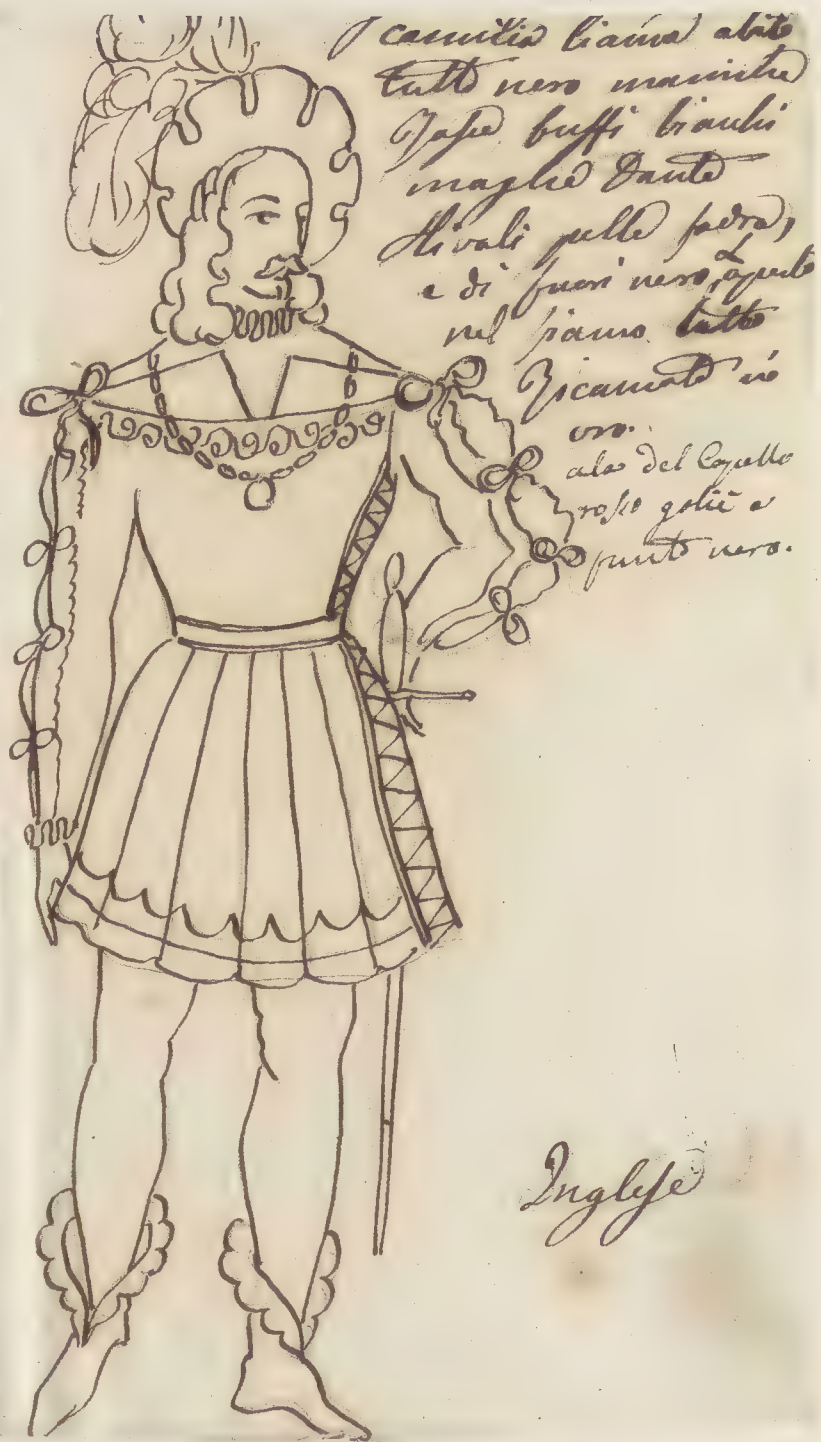 camicia bianca abito
tutto nero maniche
Jase buffi bianchi
maglie Dante
stivali pelle fodra,
e di fuori nero, aperto
nel fianco tutto
Ricamato in
oro.
ala del Capello
rosso e
punte nero.
Inglese